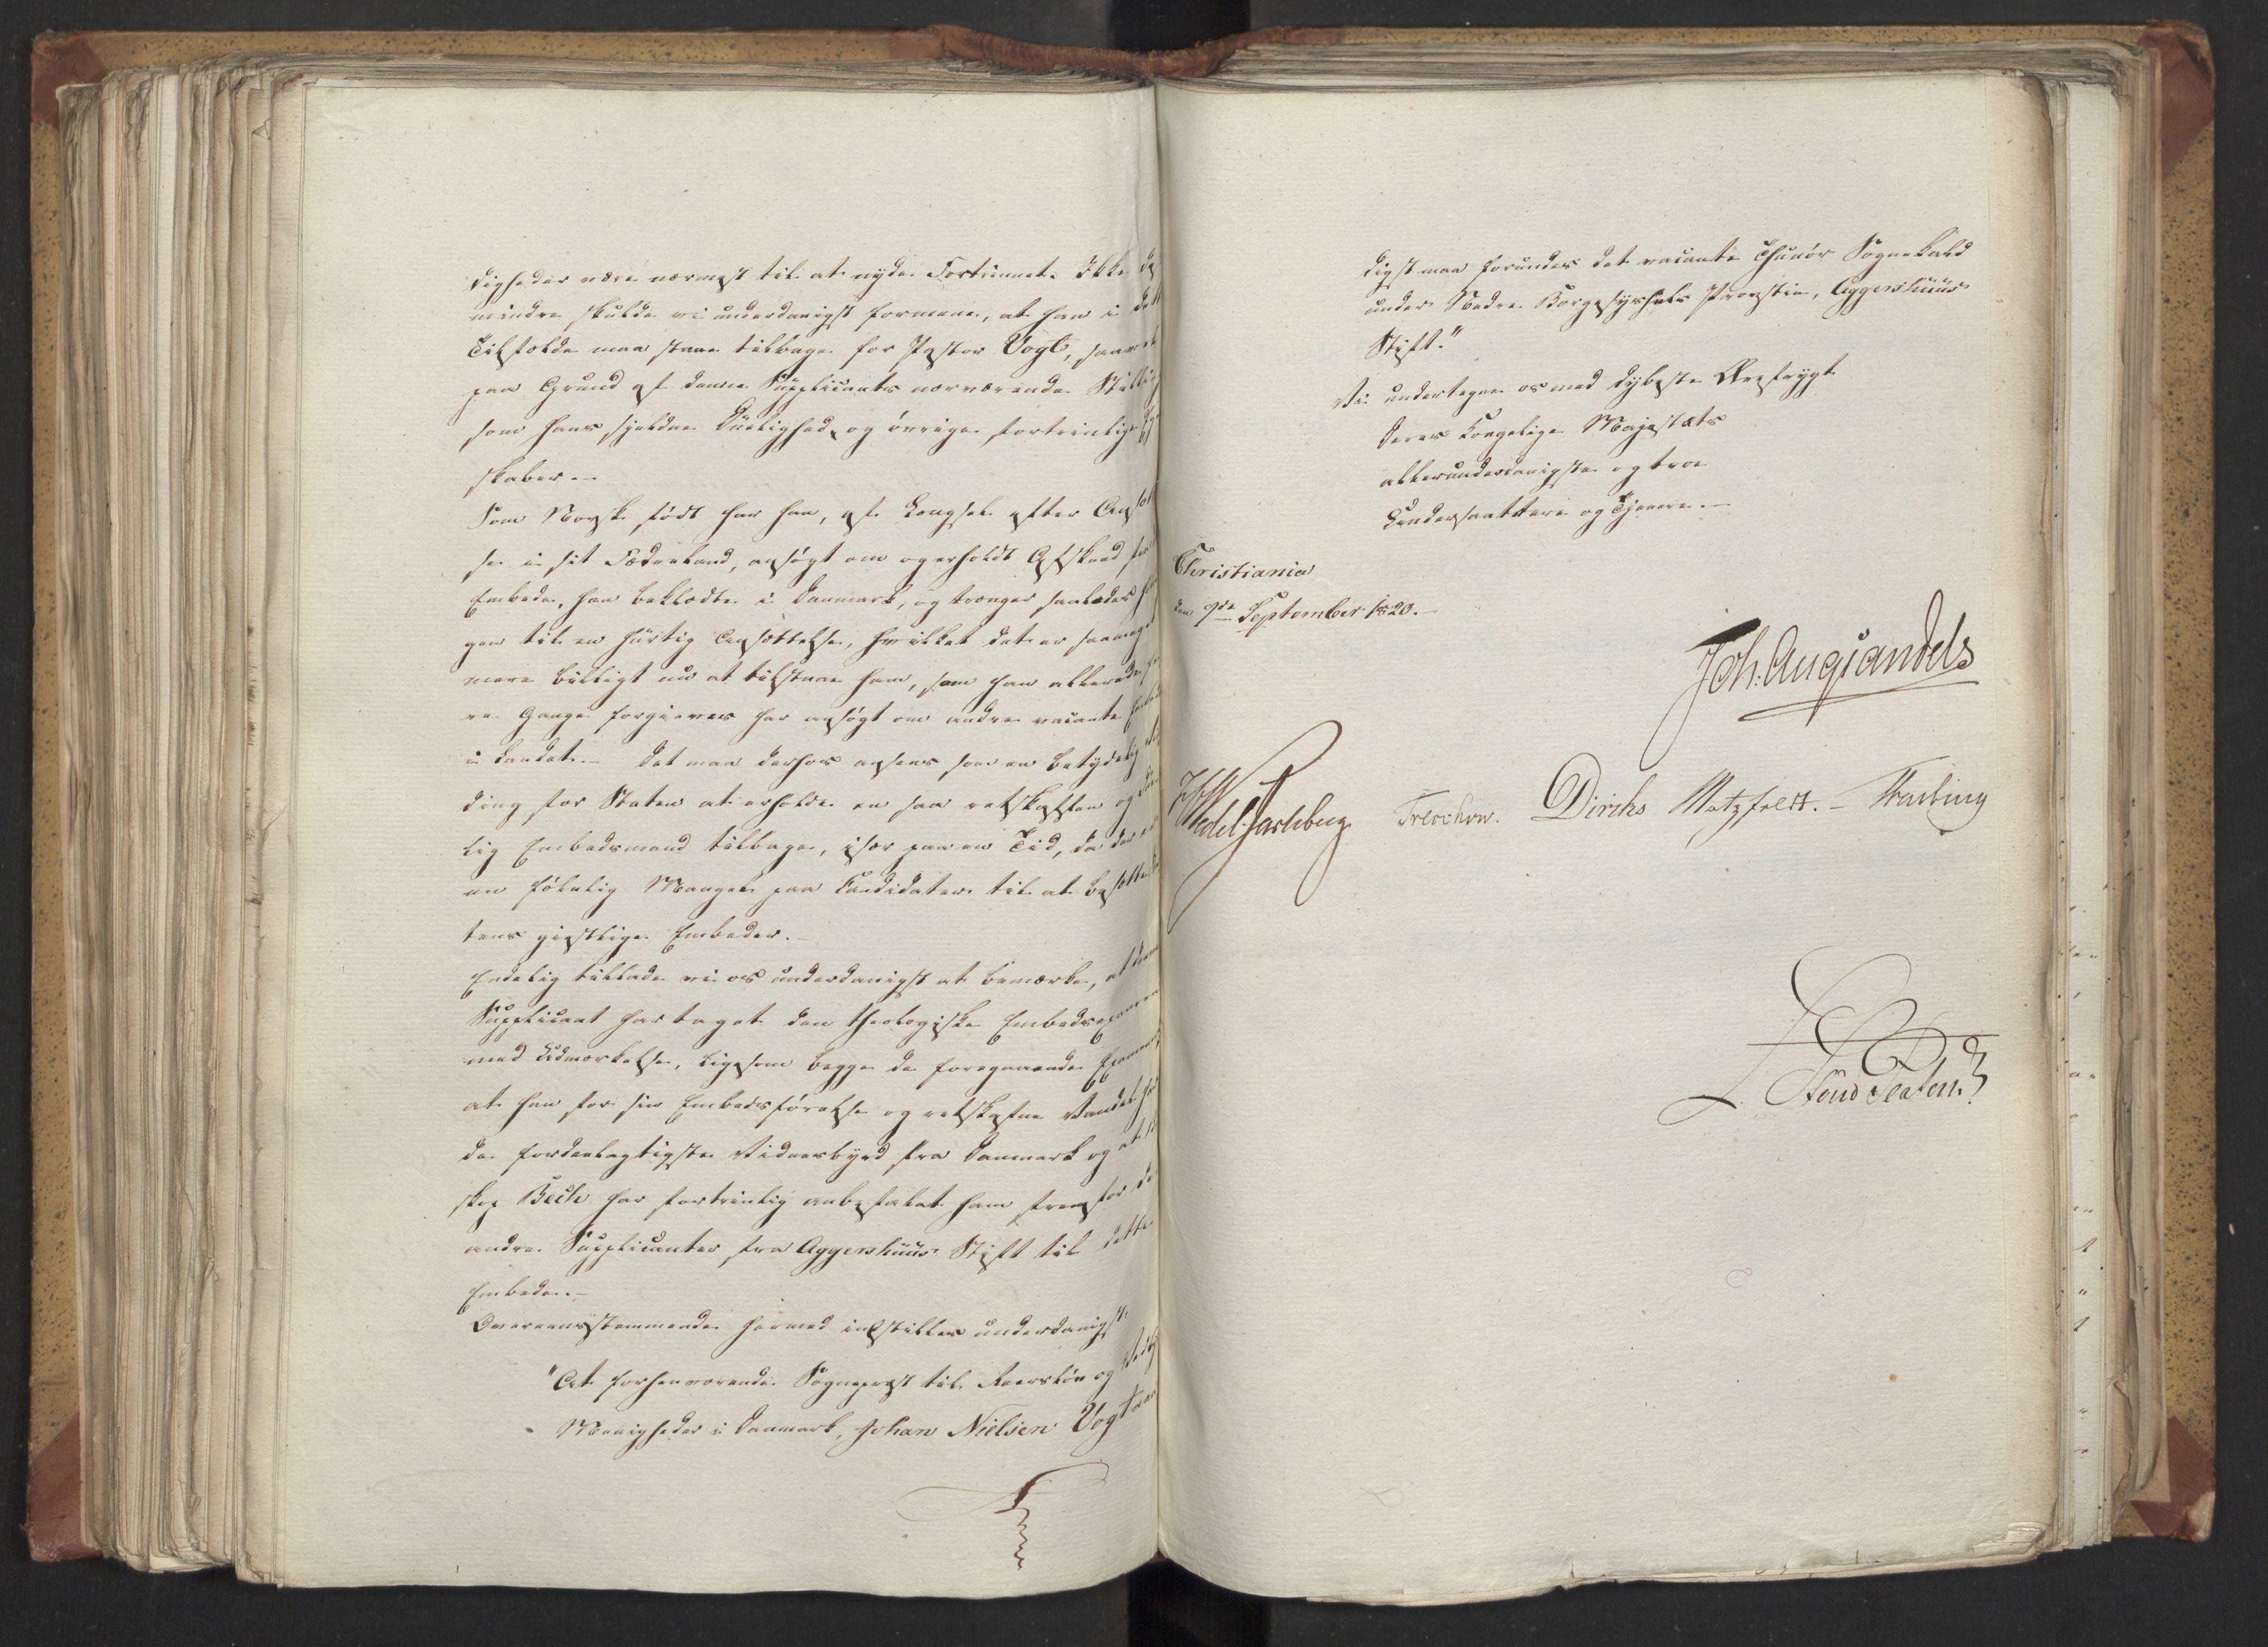 digheder være nærmest til at nyde Fortrinnet. Ikke des
mindre skulde vi underdanigst formene, at han i dette
Tilfælde maa staae tilbage for Pastor Vogt, saavel
paa Grund af denne Supplicants nærværende Stilling
som hans sjeldne Duelighed og øvrige fortrinlige Egen
skaber.-
Som Norsk født har han, af Længsel efter Ansættel
se i sit Fædreland, ansøgt om og erholdt Afskeed fra
Embede, han beklædte i Danmark, og trænger saaledes
gen til en hurtig Ansættelse, hvilket det er saameget
mere billigt nu at tilstaae ham, som han allerede
re Gange forgieves har ansøgt om andre vacante Embeder
i Landet.- Det maa derhos ansees som en betydelig
ding for Staten at erholde en saa retskaffen og
lig Embedsmand tilbage, især paa en Tid, da der er
en følelig Mangel paa Candidater til at besætte
tens geistlige Embeder.-
Endelig tillade vi os underdanigst at bemærke, at denne
Supplicant har taget den theologiske Embedsexamen
med Udmærkelse, ligesom begge de foregaaende Examina,
at han for sin Embedsførelse og retskafne Vandel har
de fordeelagtigste Vidnesbyrd fra Danmark og at Bi
skop Bech har fortrinlig anbefalet ham fremfor de
andre Supplicanter fra Aggershuus Stift til dette
Embede.-
Overeensstemmende hermed indstilles underdanigst:
"At forhenværende Sognepræst til og
Menigheder i Danmark, Johan Nielsen Vogt naa
digst maa forundes det vacante Thunøe Sognekald
under Nedre Borgesyssels Provstie, Aggershuus
Stift."
Vi undertegne os med dybeste Ærefrygt
Deres Kongelige Majestæts
allerunderdanigste og troe
Undersaattere og Tjenere.-
Christiania
den 9de September 1820.-
Joh. Aug. Sandels
Wedel-Jarlsberg Treschow. Diriks Motzfeldt.- Fasting